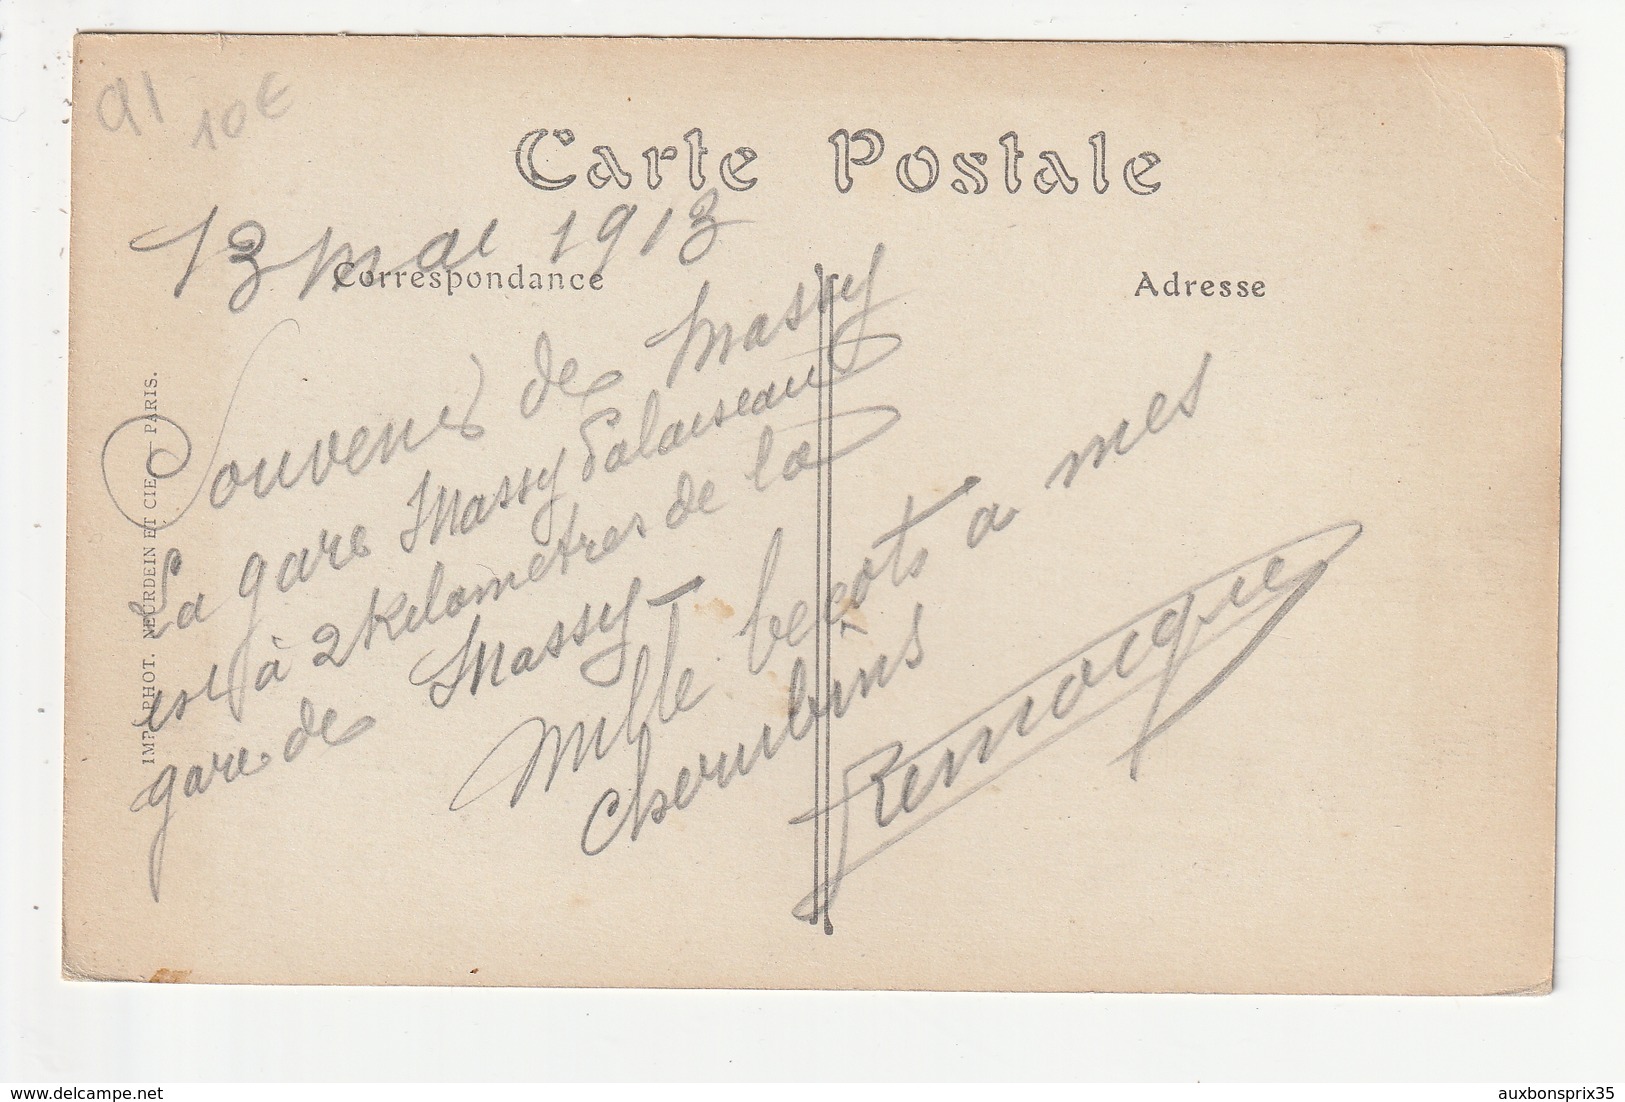 91
10€
Carte Postale
13 mai 1913
Correspondance
Adresse
Souvenir de Massy
La gare Massy Palaiseau
est à 2 kilomètres de la
gare de Massy -
Mille becots a mes
cherubins
Remocque
IMP. PHOT. NEURDEIN ET CIE. — PARIS.
delcampe.net
auxbonsprix35